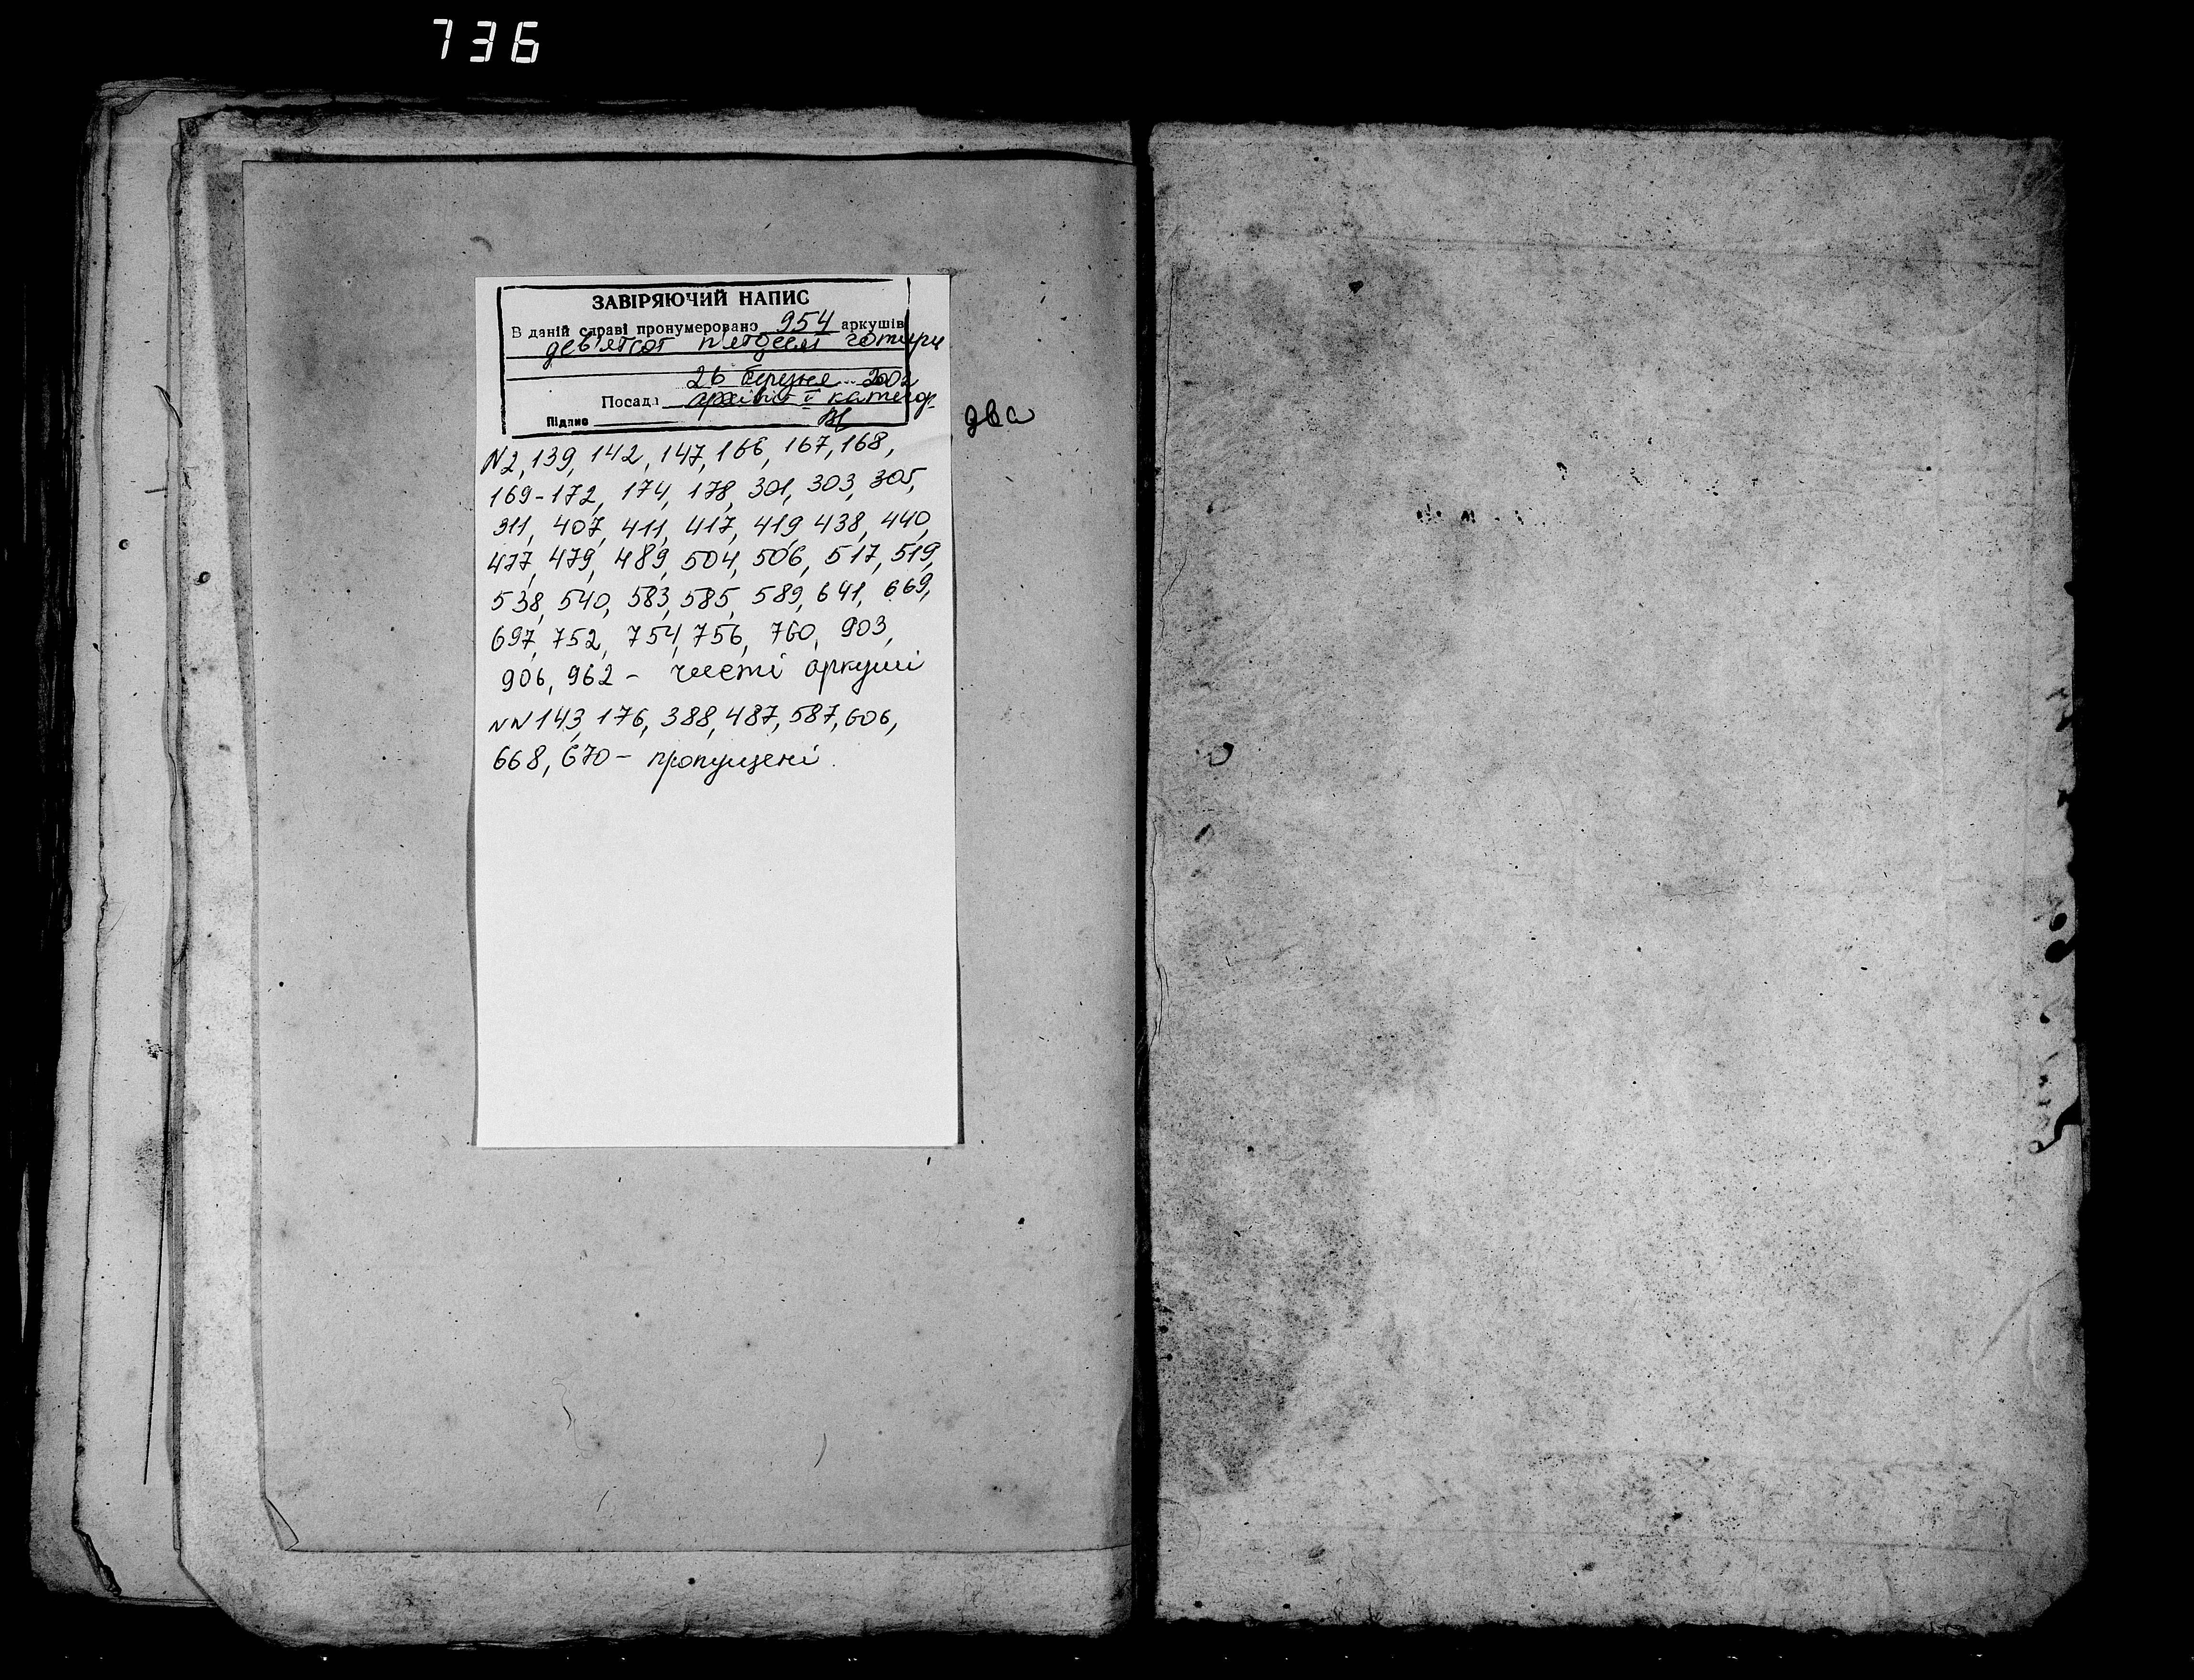 736
ЗАВІРЯЮЧИЙ НАПИС
В даній справі пронумеровано 954 аркушів
дев'ятсот п'ятдесят чотири
26 березня 2002
Посада архівіст II категор.
Підпис
два
N2, 139, 142, 147, 166, 167, 168,
169-172, 174, 178, 301, 303, 305,
311, 407, 411, 417, 419, 438, 440,
477, 479, 489, 504, 506, 517, 519,
538, 540, 583, 585, 589, 641, 669,
697, 752, 754, 756, 760, 903,
906, 962 - чисті аркуші
NN 143, 176, 388, 487, 587, 606,
668, 670 - пропущені.